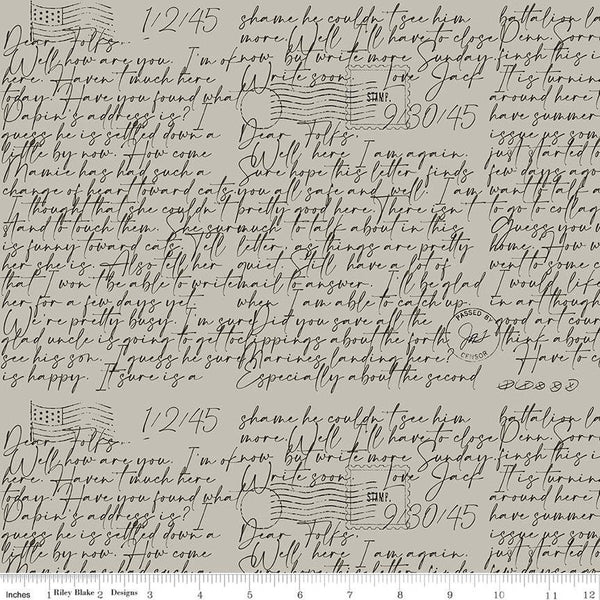 1/2/45
Dear Folks...
Well, how are you. I'm ok
here. Haven't much here
today. Have you found what
Papin's address is? I
guess he is settled down a
little by now. How come
Mamie has had such a
change of heart toward cats.
I thought that she couldn't
stand to touch them. She sur
is funny toward cats. Tell
her she is. Also tell her
that I won't be able to write
her for a few days yet.
We're pretty busy. I'm sure
glad uncle is going to get to
see his son. I guess he sure
is happy. It sure is a
shame he couldn't see him
more. Well, I'll have to close
now but write more Sunday.
Write soon. love Jack
STAMP.
9/30/45
Dear Folks.
Well, here I am again.
Sure hope this letter finds
you all safe and well. I am
pretty good here. There isn't
much to talk about in this
letter, as things are pretty
quiet. Still have a lot of
mail to answer. I'll be glad
when I am able to catch up.
Did you save all the
clippings about the forth
Marines landing here?
Especially about the second
PASSED BY
CENSOR
battalion la
Penn. Sorr
finsh this i
It is turnin
around here t
have summer
issue us som
just started to
want to talk a
to go to collag
Guess you w
home. How w
went to some c
I would life
in art though
good art cour
think about
Have to c
1/2/45
Dear Folks...
Well, how are you. I'm ok
here. Haven't much here
today. Have you found what
Papin's address is? I
guess he is settled down a
little by now. How come
Mamie has had such a
shame he couldn't see him
more. Well, I'll have to close
now but write more Sunday.
Write soon. love Jack
STAMP.
9/30/45
Dear Folks.
Well, here I am again.
Sure hope this letter finds
battalion la
Penn. Sorr
finsh this i
It is turnin
around here t
have summer
issue us som
just started to
Inches 1 Riley Blake 2 Designs 3 4 5 6 7 8 9 10 11 12